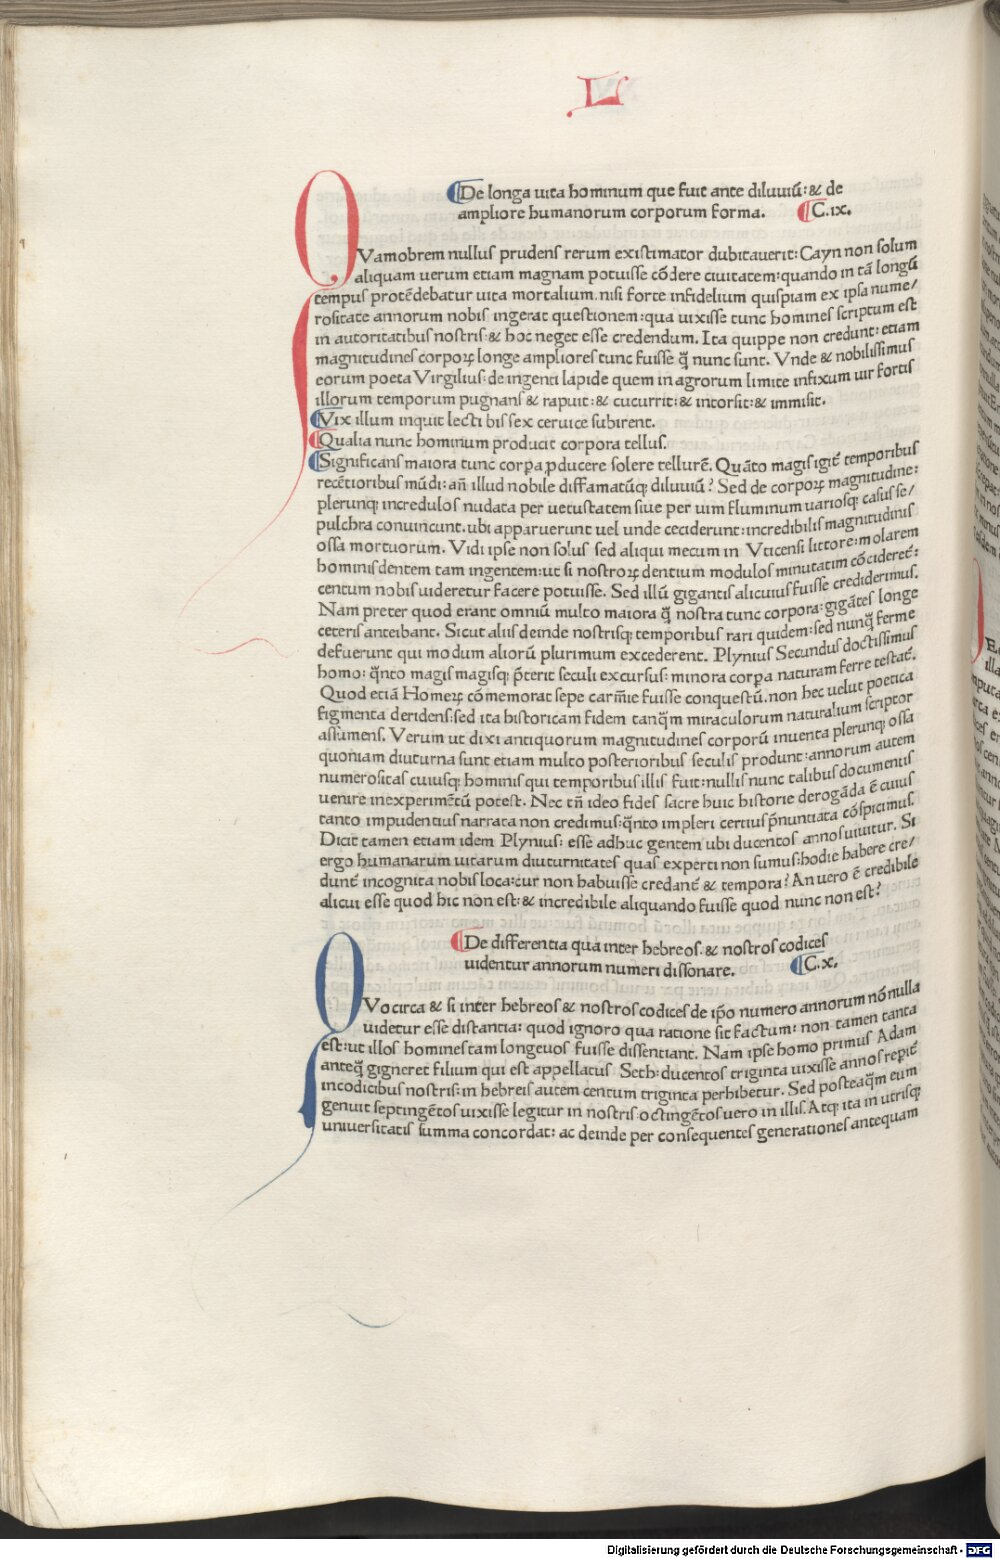 L
De longa uita hominum que fuit ante diluuiū: & de
ampliore humanorum corporum forma. C.ix.
QVamobrem nullus prudens rerum existimator dubitauerit: Cayn non solum
aliquam uerum etiam magnam potuisse cōdere ciuitatem: quando in tā longū
tempus protēdebatur uita mortalium. nisi forte infidelium quispiam ex ipsa nume/
rositate annorum nobis ingerat questionem: qua uixisse tunc homines scriptum est
in autoritatibus nostris: & hoc neget esse credendum. Ita quippe non credunt: etiam
magnitudines corpoꝝ longe ampliores tunc fuisse q̄ nunc sunt. Vnde & nobilissimus
eorum poeta Virgilius: de ingenti lapide quem in agrorum limite infixum uir fortis
illorum temporum pugnans & rapuit: & cucurrit: & intorsit: & immisit.
Vix illum inquit lecti bis sex ceruice subirent.
Qualia nunc hominum producit corpora tellus.
Significans maiora tunc corpa ꝓducere solere tellurē. Quāto magis igit̄ temporibus
recētioribus mūdi: añ illud nobile diffamatūqꝫ diluuiū? Sed de corpoꝝ magnitudine:
plerunqꝫ incredulos nudata per uetustatem siue per uim fluminum uariosqꝫ casus se/
pulchra conuincunt. ubi apparuerunt uel unde ceciderunt: incredibilis magnitudinis
ossa mortuorum. Vidi ipse non solus sed aliqui mecum in Vticensi littore: molarem
hominis dentem tam ingentem: ut si nostroꝝ dentium modulos minutatim cōcideret̄:
centum nobis uideretur facere potuisse. Sed illū gigantis alicuius fuisse crediderimus.
Nam preter quod erant omniū multo maiora q̄ nostra tunc corpora: gigātes longe
ceteris anteibant. Sicut aliis deinde nostrisqꝫ temporibus rari quidem: sed nunq̄ ferme
defuerunt qui modum aliorū plurimum excederent. Plynius Secundus doctissimus
homo: q̄nto magis magisqꝫ p̄terit seculi excursus: minora corpa naturam ferre testat̄.
Quod etiā Homeꝝ cōmemorat sepe carmīe fuisse conquestū. non hec uelut poetica
figmenta deridens: sed ita historicam fidem tanq̄m miraculorum naturalium scriptor
assumens. Verum ut dixi antiquorum magnitudines corporū inuenta plerunqꝫ ossa
quoniam diuturna sunt etiam multo posterioribus seculis produnt: annorum autem
numerositas cuiusqꝫ hominis qui temporibus illis fuit: nullis nunc talibus documentis
uenire in experimētū potest. Nec tñ ideo fides sacre huic historie derogāda ē cuius
tanto impudentius narrata non credimus: q̄nto impleri certius p̄nuntiata cōspicimus.
Dicit tamen etiam idem Plynius: esse adhuc gentem ubi ducentos annos uiuitur. Si
ergo humanarum uitarum diuturnitates quas experti non sumus: hodie habere cre/
dunt̄ incognita nobis loca: cur non habuisse credant̄ & tempora? An uero ē credibile
alicui esse quod hic non est: & incredibile aliquando fuisse quod nunc non est?
De differentia qua inter hebreos & nostros codices
uidentur annorum numeri dissonare. C.x.
QVocirca & si inter hebreos & nostros codices de ip̄o numero annorum nōnulla
uidetur esse distantia: quod ignoro qua ratione sit factum: non tamen tanta
est: ut illos homines tam longeuos fuisse dissentiant. Nam ipse homo primus Adam
anteq̄ gigneret filium qui est appellatus Seth: ducentos triginta uixisse annos repit̄
in codicibus nostris: in hebreis autem centum triginta perhibetur. Sed posteaq̄m eum
genuit septingētos uixisse legitur in nostris octingētos uero in illis. Atqꝫ ita in utrisqꝫ
uniuersitatis summa concordat: ac deinde per consequentes generationes antequam
Digitalisierung gefördert durch die Deutsche Forschungsgemeinschaft - DFG